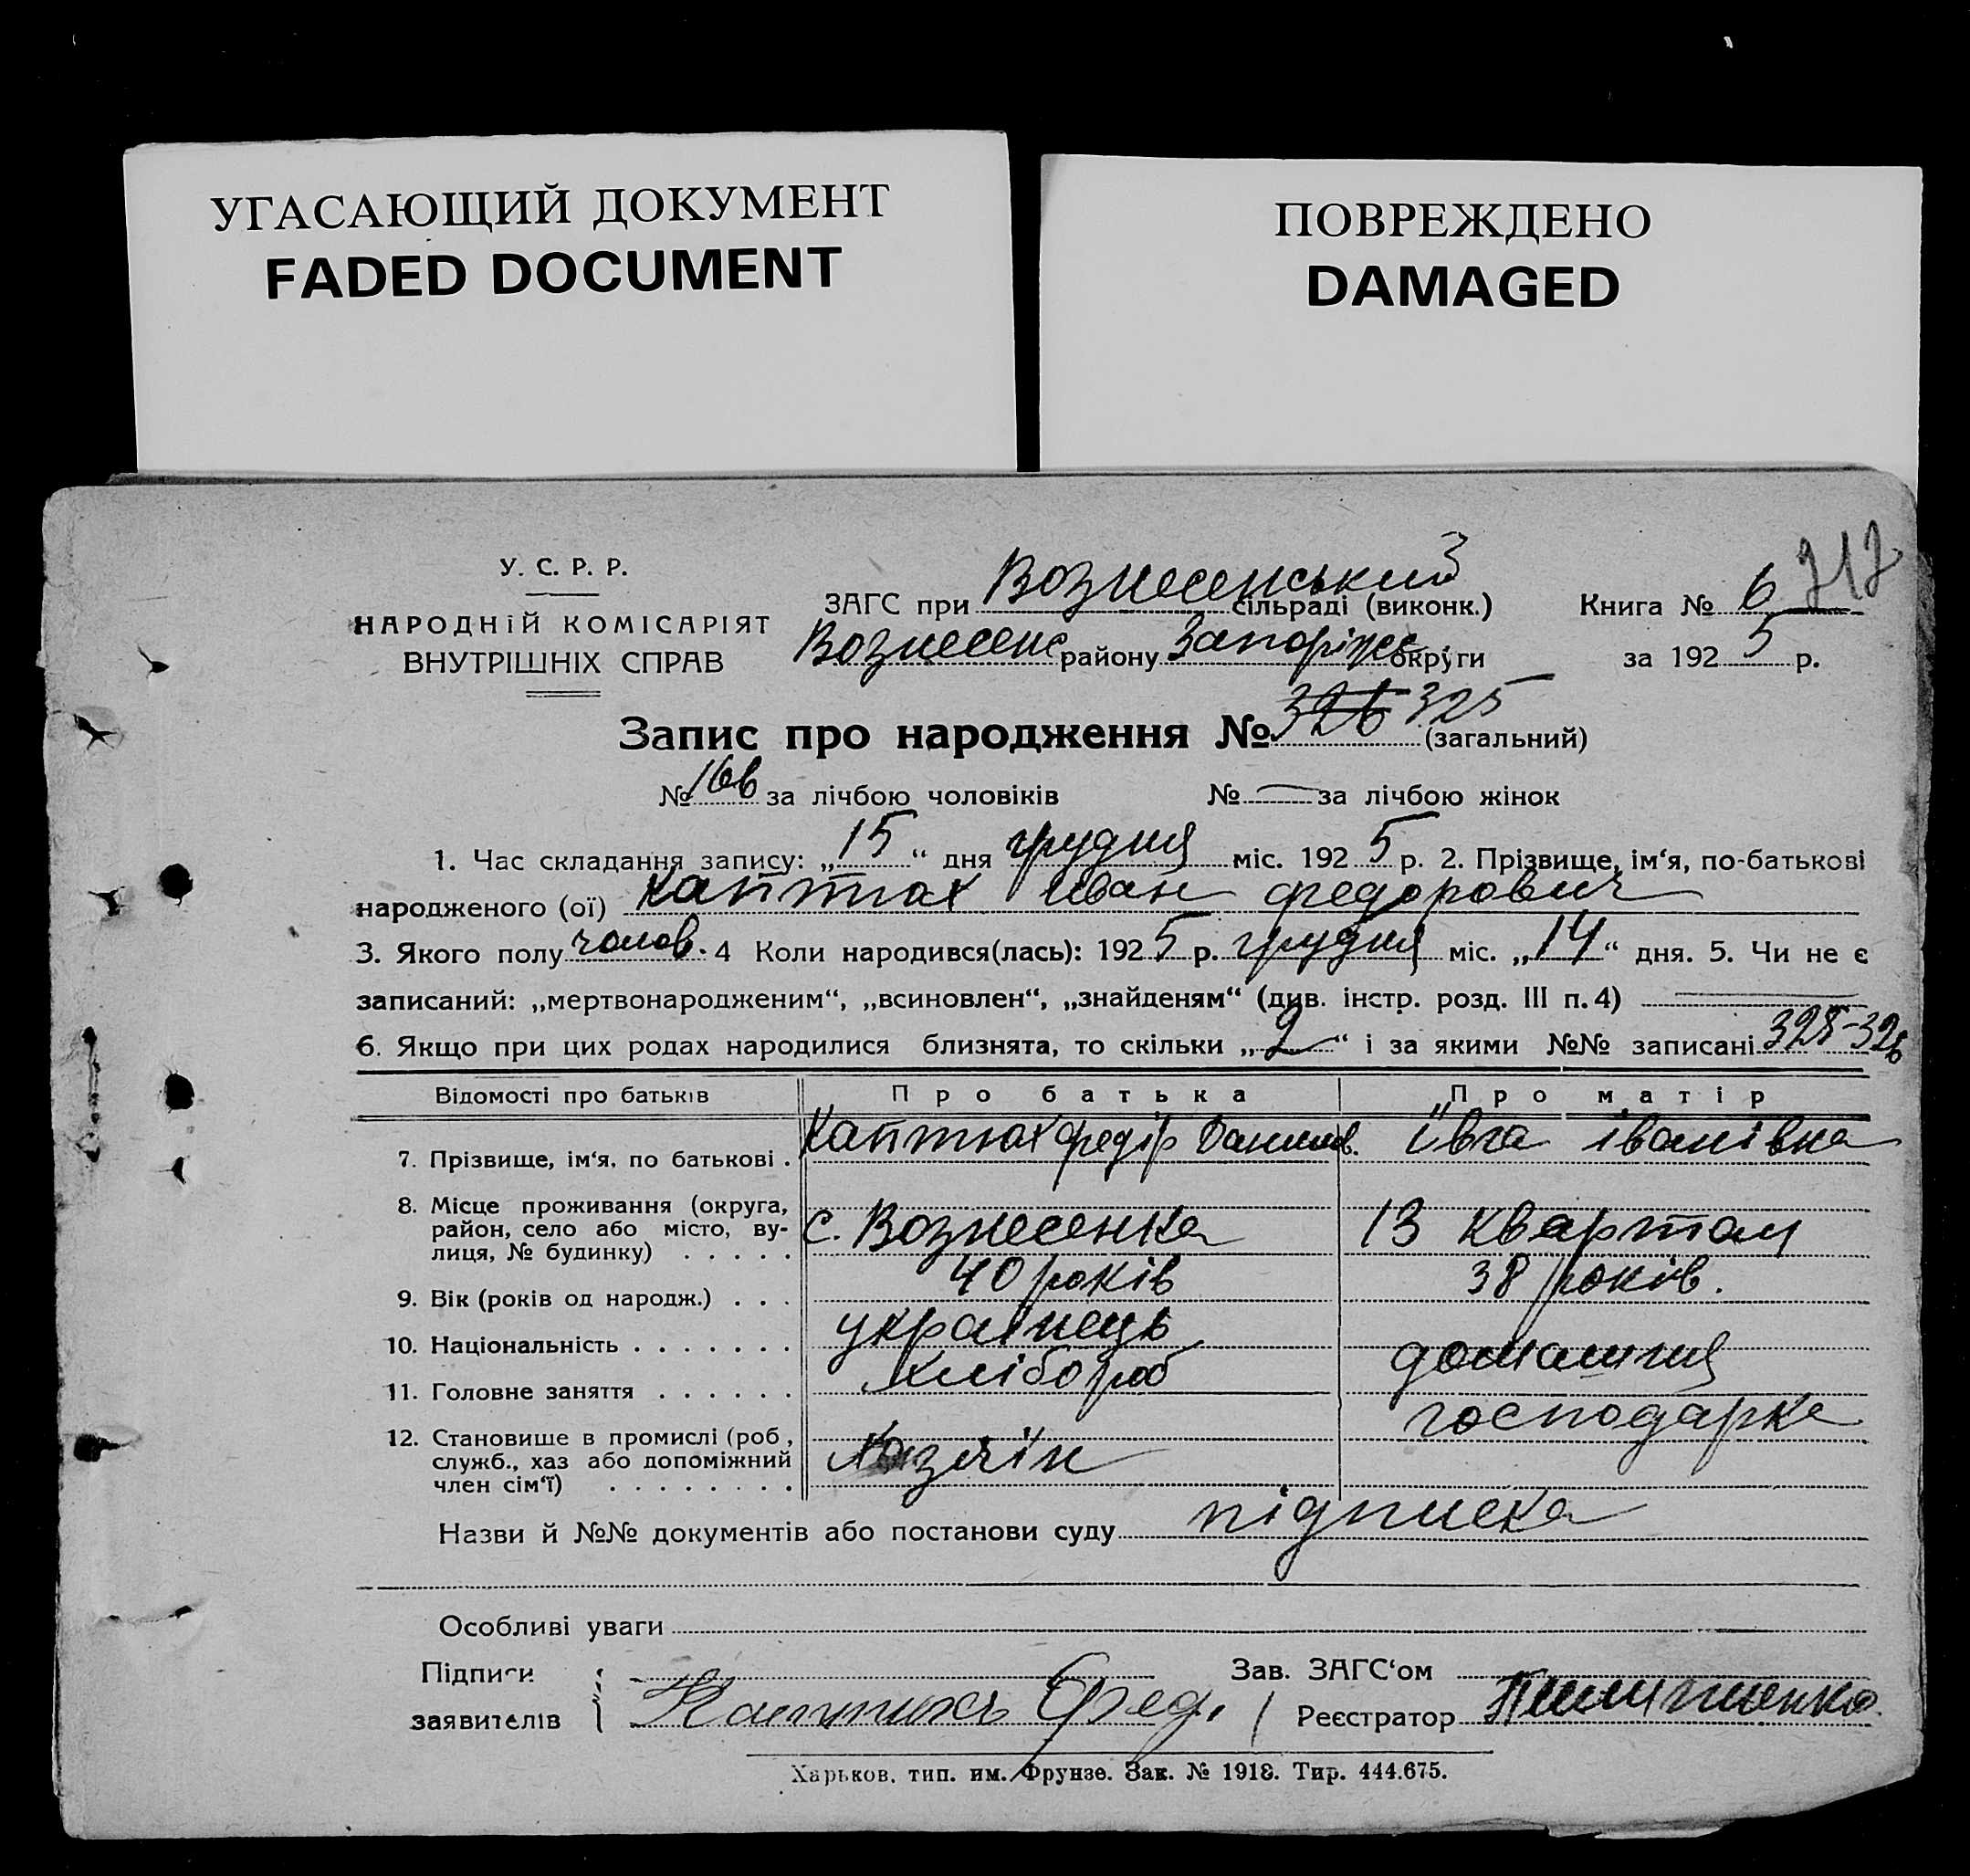 УГАСАЮЩИЙ ДОКУМЕНТ
FADED DOCUMENT
ПОВРЕЖДЕНО
DAMAGED
У. С. Р. Р.
НАРОДНІЙ КОМІСАРІЯТ
ВНУТРІШНІХ СПРАВ
ЗАГС при Вознесенський сільраді (виконк.)
Вознесенс району Запоріжс. округи
Книга № 6
за 1925 р.
Запис про народження № 326 325 (загальний)
№ 166 за лічбою чоловіків № — за лічбою жінок
1. Час складання запису: „15“ дня грудня міс. 1925 р. 2. Прізвище, ім‘я, по-батькові
народженого (ої) Каптюх Іван Федорович
3. Якого полу чолов. 4 Коли народився(лась): 1925 р. грудня міс. „14“ дня. 5. Чи не є
записаний: „мертвонародженим“, „всиновлен“, „знайденям“ (див. інстр. розд. III п. 4) —
6. Якщо при цих родах народилися близнята, то скільки „2“ і за якими №№ записані 325-326
Відомості про батьків Про батька Про матір
7. Прізвище, ім‘я, по батькові . Каптюх Федір Данилов. Ївга Іванівна
8. Місце проживання (округа,
район, село або місто, ву-
лиця, № будинку) . . . . . с. Вознесенка 13 квартал
9. Вік (років од народж.) . . . 40 років 38 років.
10. Національність . . . . . . . українець
11. Головне заняття . . . . . . хлібороб домашня
господарка
12. Становище в промислі (роб,
служб., хаз або допоміжний
член сім‘ї) . . . . . . . . Хазяїн
Назви й №№ документів або постанови суду підписка
Особливі уваги
Підписи
заявителів Каптюхъ Фед.
Зав. ЗАГС‘ом
Реєстратор
Харьков, тип. им. Фрунзе. Зак. № 1918. Тир. 444.675.